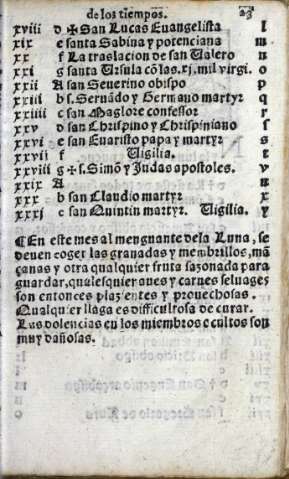 de los tiempos. 23
xviii d ✠San Lucas Euangelista l
xix e santa Sabina y potenciana m
xx f La traslacion de san Ualero n
xxi g santa Ursula cõ las .xj. mil virgi. o
xxii A san Seuerino obispo p
xxiii b s. Sernãdo y Germano martyr q
xxiiii c san Maglore confessor r
xxv d san Chrispino y Chrispiniano s
xxvi e san Euaristo papa y martyr s
xxvii f Uigilia. t
xxviii g + s. Simõ y Judas apostoles. v
xxix A
xxx b san Claudio martyr x
xxxj c san Quintin martyr. Uigilia. y
¶En este mes al menguante dela Luna, se
deuen coger las granadas y membrillos, mã
çanas y otra qualquier fruta sazonada para
guardar, qualesquier aues y carnes seluages
son entonces plazientes y prouechosas.
Qualquier llaga es difficultosa de curar.
Las dolencias en los miembros ocultos son
muy dañosas.